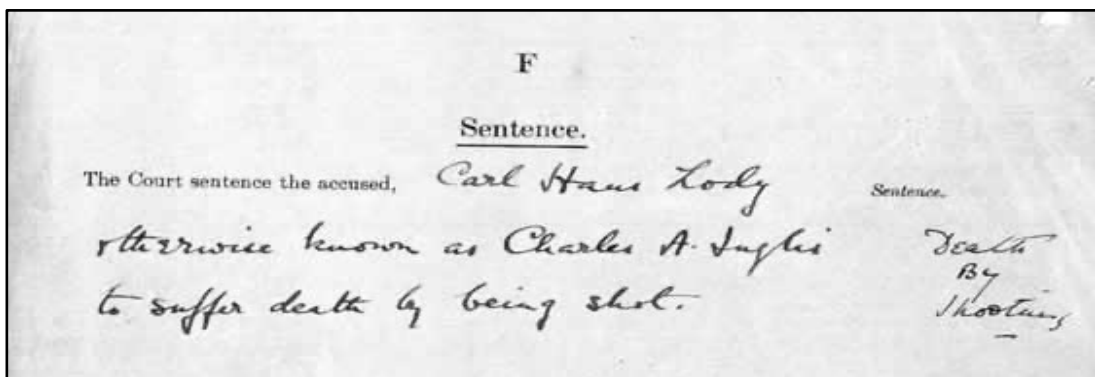 F
Sentence.
The Court sentence the accused, Carl Hans Lody
otherwise known as Charles A. Inglis
to suffer death by being shot.
Sentence.
Death
By
Shooting